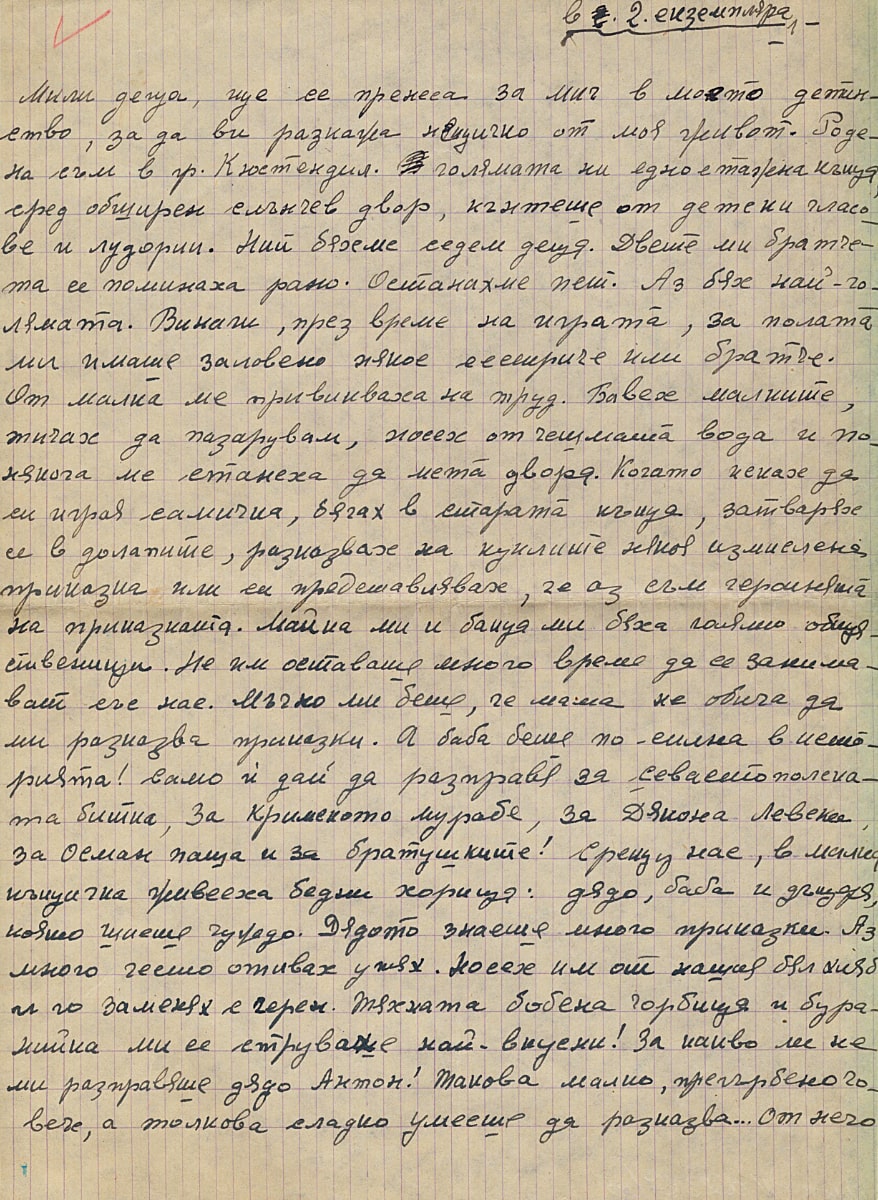 в 2. екземпляра
Мили деца, ще се пренеса за миг в моето детин-
ство, за да ви разкажа нещичко от моя живот. Роде-
на съм в гр. Кюстендил. голямата ни едноетажна къща,
сред обширен слънчев двор, кънтеше от детски гласо
ве и лудории. Ний бяхме седем деца. Двете ми братче-
та се поминаха рано. Останахме пет. Аз бях най-го-
лямата. Винаги, през време на играта, за полата
ми имаше заловено някое сестриче или братче.
От малка ме привикваха на труд. Бавех малките,
тичах да пазарувам, носех от чешмата вода и по-
някога ме станеха да мета двора. Когато исках да
си играя самичка, бягах в старата къща, затварях
се в долапите, разказвах на куклите някоя измислена
приказка или си представлявах, че аз съм героинята
на приказката. Майка ми и баща ми бяха голямо общя-
ственици. Не им оставаше много време да се занима-
ват със нас. Мъчно ми беше, че мама не обича да
ми разказва приказки. А баба беше по-силна в исто-
рията! Само ѝ дай да разправя за Севастополска-
та битка, За Кримското мурабе, за Дякона Левски,
за Осман паша и за братушките! Срещу нас, в малка
къщичка живееха бедни хорица: дядо, баба и дъщеря,
която шиеше чуждо. Дядото знаеше много приказки. Аз
много често отивах у тях. Носех им от нашия бял хляб
и го заменях с черен. Тяхната бобена чорбица и бура-
нийка ми се струваше най-вкусни! За какво ли не
ми разправяше дядо Антон! Такова малко, прегърбено чо-
вече, а толкова сладко умееше да разказва... От него